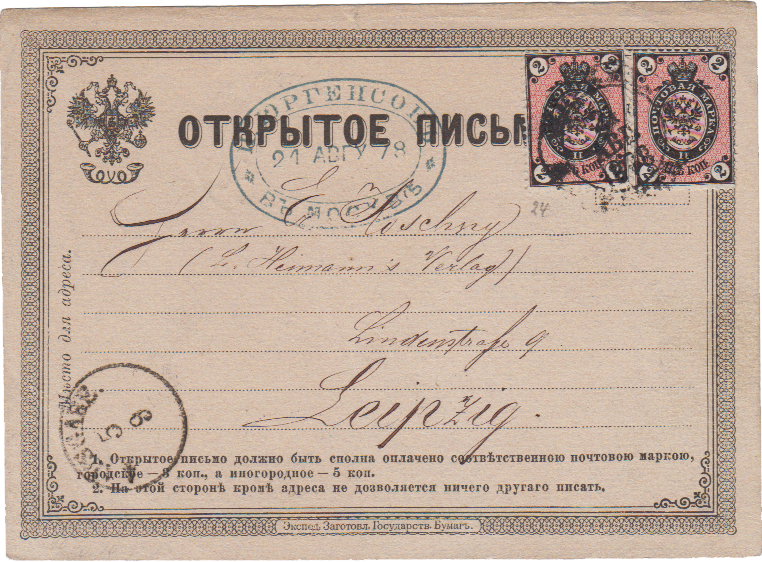 ОТКРЫТОЕ ПИСЬМ
П. ЮРГЕНСОНЪ
21 АВГУ 78
ВЪ МОСКВѢ
2 2
2 2
2 2
2 2
ПОЧТОВАЯ МАРКА
24
Herrn E. Koschny
(L. Heimann's Verlag)
Lindenstraße 9
Leipzig.
Мѣсто для адреса.
1. Открытое письмо должно быть сполна оплачено соотвѣтственною почтовою маркою,
городское — 3 коп., а иногородное — 5 коп.
2. На этой сторонѣ кромѣ адреса не дозволяется ничего другаго писать.
Экспед. Заготовл. Государств. Бумагъ.